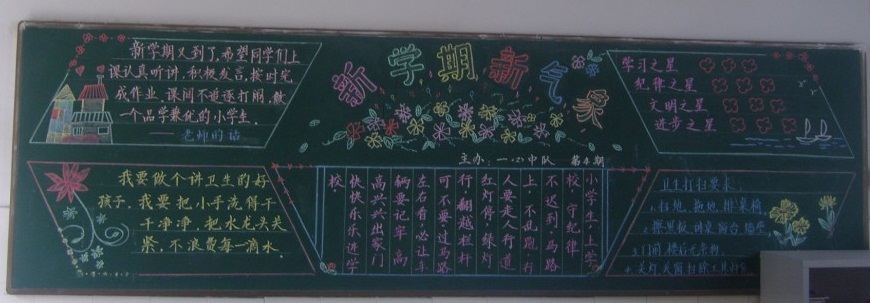 新学期又到了,希望同学们上
课认真听讲,积极发言,按时完
成作业,课间不追逐打闹,做
一个品学兼优的小学生。
——老师的话
新学期新气象
主办:一·(2)中队 第4期
学习之星
纪律之星
文明之星
进步之星
我要做个讲卫生的好
孩子,我要把小手洗得干
干净净,把水龙头关
紧,不浪费每一滴水
小学生,上学
校,守纪律
不迟到,马路
上,不乱跑,行
人要走人行道
红灯停,绿灯
行,翻越栏杆
可不要,过马路
左右看,必让车
辆要记牢,高
高兴兴出家门
快快乐乐进学
校。
卫生打扫要求:
1.扫地,拖地,排桌椅
2.擦黑板,讲桌,窗台,墙壁
3.门前,楼后无杂物
4.关灯,关窗,打除工具